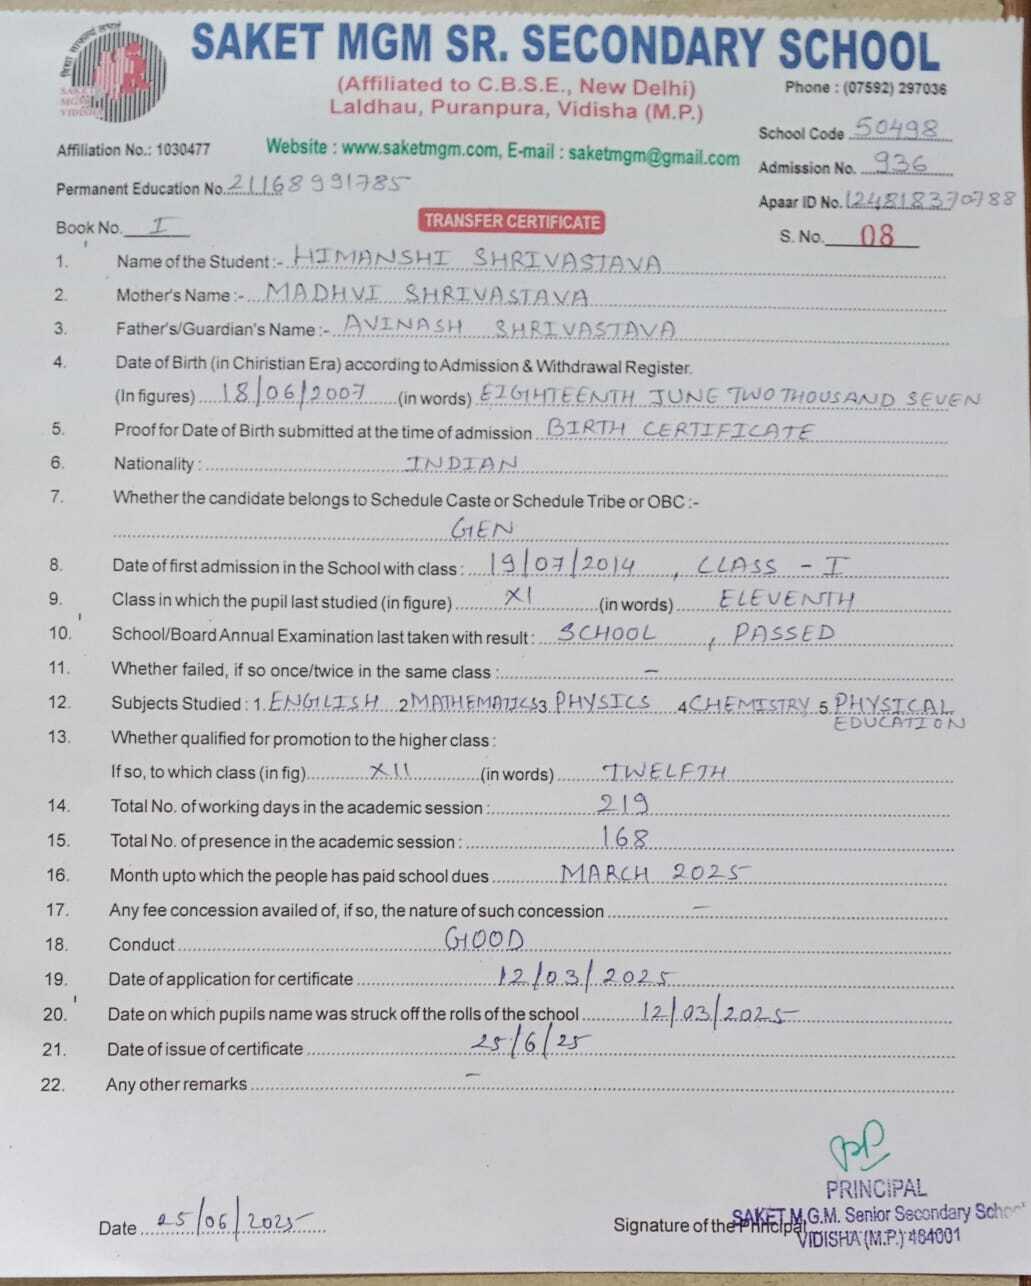 SAKET MGM SR. SECONDARY SCHOOL
(Affiliated to C.B.S.E., New Delhi)
Phone : (07592) 297036
Laldhau, Puranpura, Vidisha (M.P.)
SAKET
MGM
VIDISHA
School Code 50498
Affiliation No.: 1030477
Website : www.saketmgm.com, E-mail : saketmgm@gmail.com
Admission No. 936
Permanent Education No. 21168991785
Apaar ID No. 124818370788
Book No. I
TRANSFER CERTIFICATE
S. No. 08
1. Name of the Student :- HIMANSHI SHRIVASTAVA
2. Mother's Name :- MADHVI SHRIVASTAVA
3. Father's/Guardian's Name :- AVINASH SHRIVASTAVA
4. Date of Birth (in Chiristian Era) according to Admission & Withdrawal Register.
(In figures) 18/06/2007 (in words) EIGHTEENTH JUNE TWO THOUSAND SEVEN
5. Proof for Date of Birth submitted at the time of admission BIRTH CERTIFICATE
6. Nationality : INDIAN
7. Whether the candidate belongs to Schedule Caste or Schedule Tribe or OBC :-
GEN
8. Date of first admission in the School with class : 19/07/2014 , CLASS - I
9. Class in which the pupil last studied (in figure) XI (in words) ELEVENTH
10. School/Board Annual Examination last taken with result : SCHOOL , PASSED
11. Whether failed, if so once/twice in the same class : -
12. Subjects Studied : 1. ENGLISH 2 MATHEMATICS 3. PHYSICS 4 CHEMISTRY 5. PHYSICAL
EDUCATION
13. Whether qualified for promotion to the higher class :
If so, to which class (in fig) XII (in words) TWELFTH
14. Total No. of working days in the academic session : 219
15. Total No. of presence in the academic session : 168
16. Month upto which the people has paid school dues MARCH 2025
17. Any fee concession availed of, if so, the nature of such concession -
18. Conduct GOOD
19. Date of application for certificate 12/03/2025
20. Date on which pupils name was struck off the rolls of the school 12/03/2025
21. Date of issue of certificate 25/6/25
22. Any other remarks -
PRINCIPAL
SAKET M.G.M. Senior Secondary School
Date 25/06/2025
Signature of the Principal
VIDISHA (M.P.) 464001